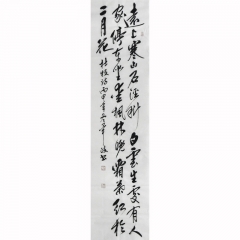 遠上寒山石徑斜白雲生處有人
家停車坐愛楓林晚霜葉紅於
二月花 杜牧詩丙申